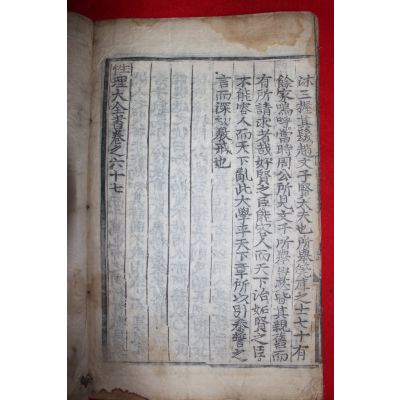 沐三握其髮趙文子賢大夫也所擧筦庫之士七十有
餘家嗚呼當時周公所見文子所擧豈必皆其親舊而
有所請求者哉好賢之臣能容人而天下治妬賢之臣
不能容人而天下亂此大學平天下章所以引秦誓之
言而深致嚴戒也
性理大全書卷之六十七